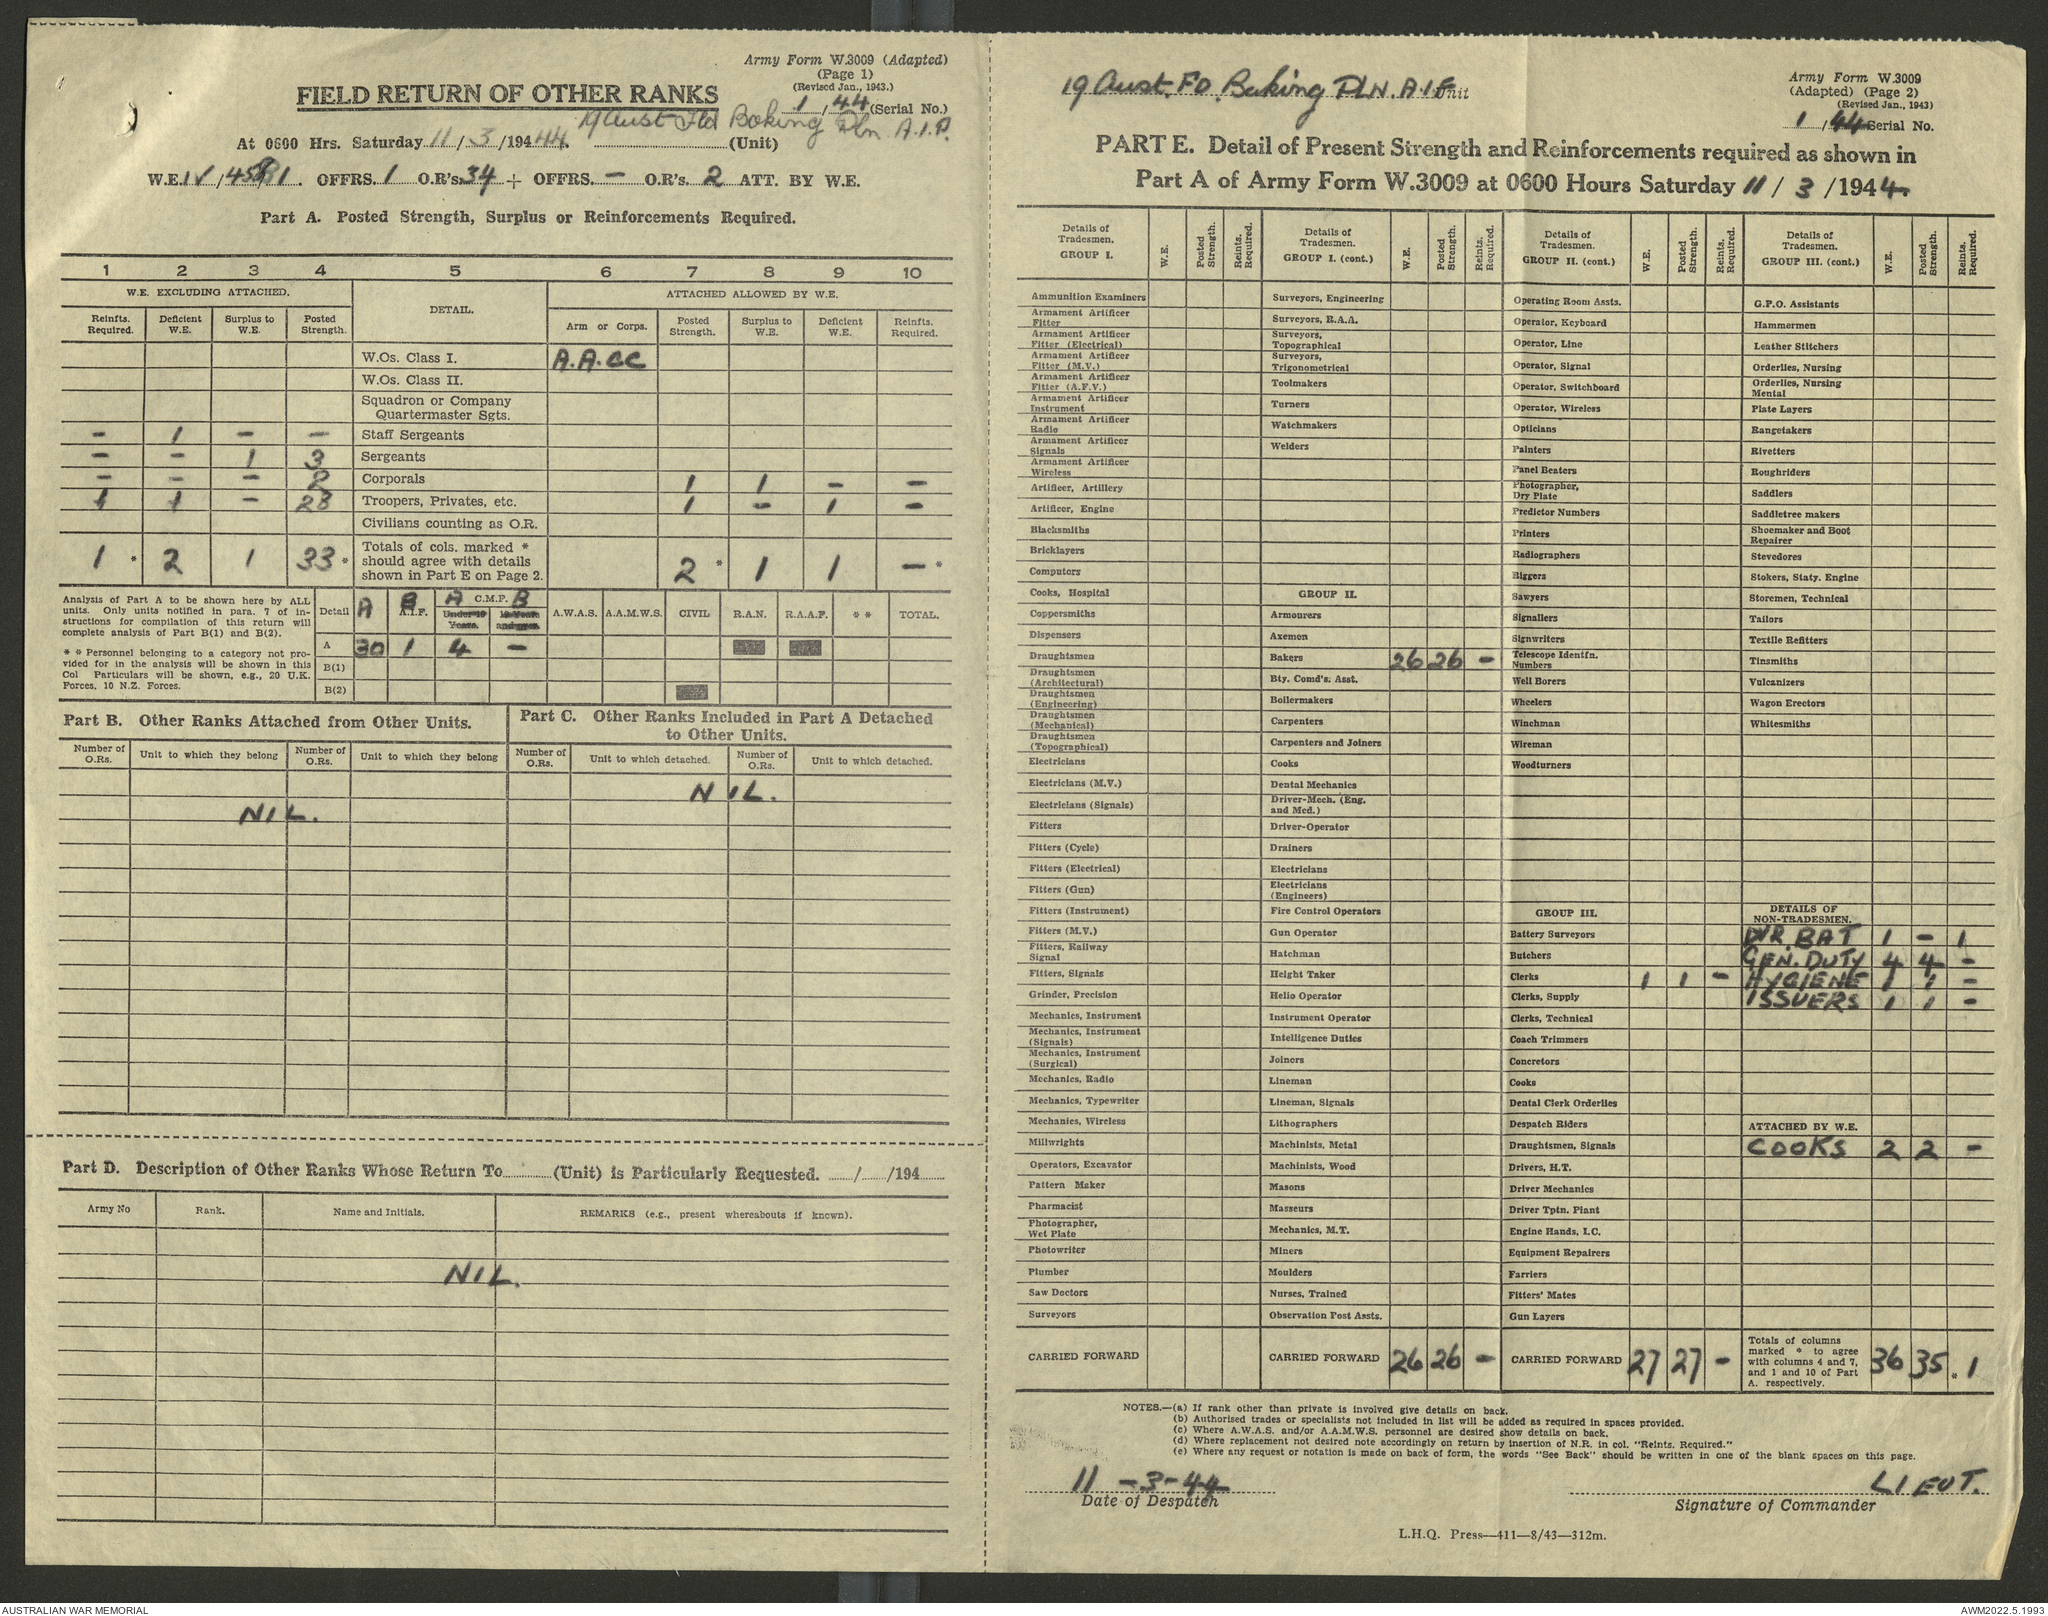 Army Form W.3009 (Adapted)
(Page 1)
(Revised Jan., 1943.)
FIELD RETURN OF OTHER RANKS
1/44 (Serial No.)
19 Aust Fld Baking Pln A.I.F.
At 0600 Hrs. Saturday 11/3/1944 (Unit)
W.E. IV/ OFFRS. 1 O.R's. 34 + OFFRS. — O.R's. 2 ATT. BY W.E.
Part A. Posted Strength, Surplus or Reinforcements Required.
1 2 3 4 5 6 7 8 9 10
W.E. EXCLUDING ATTACHED. DETAIL. ATTACHED ALLOWED BY W.E.
Reinfts. Required. Deficient W.E. Surplus to W.E. Posted Strength. Arm or Corps. Posted Strength. Surplus to W.E. Deficient W.E. Reinfts. Required.
W.Os. Class I. A.A.CC
W.Os. Class II.
Squadron or Company
Quartermaster Sgts.
— 1 — — Staff Sergeants
— — 1 3 Sergeants
— — — 2 Corporals 1 1 — —
1 1 — 28 Troopers, Privates, etc. 1 — 1 —
Civilians counting as O.R.
1 * 2 1 33 * Totals of cols. marked * should agree with details shown in Part E on Page 2. 2 * 1 1 — *
Analysis of Part A to be shown here by ALL
units. Only units notified in para. 7 of in-
structions for compilation of this return will
complete analysis of Part B(1) and B(2).
* * Personnel belonging to a category not pro-
vided for in the analysis will be shown in this
Col Particulars will be shown, e.g., 20 U.K.
Forces, 10 N.Z. Forces.
Detail A B A.I.F. A C.M.F. B Under 19 Years. 19 Years and over. A.W.A.S. A.A.M.W.S. CIVIL R.A.N. R.A.A.F. * * TOTAL.
A 30 1 4 —
B(1)
B(2)
Part B. Other Ranks Attached from Other Units.
Number of O.Rs. Unit to which they belong Number of O.Rs. Unit to which they belong
NIL.
Part C. Other Ranks Included in Part A Detached
to Other Units.
Number of O.Rs. Unit to which detached. Number of O.Rs. Unit to which detached.
NIL.
Part D. Description of Other Ranks Whose Return To (Unit) is Particularly Requested. / /194
Army No Rank. Name and Initials. REMARKS (e.g., present whereabouts if known).
NIL.
19 Aust. FD. Baking PLN. A.I.F. Unit
Army Form W.3009
(Adapted) (Page 2)
(Revised Jan., 1943)
1/44 Serial No.
PART E. Detail of Present Strength and Reinforcements required as shown in
Part A of Army Form W.3009 at 0600 Hours Saturday 11/3/1944
Details of Tradesmen. GROUP I. W.E. Posted Strength. Reints. Required.
Ammunition Examiners
Armament Artificer Fitter
Armament Artificer Fitter (Electrical)
Armament Artificer Fitter (M.V.)
Armament Artificer Fitter (A.F.V.)
Armament Artificer Instrument
Armament Artificer Radio
Armament Artificer Signals
Armament Artificer Wireless
Artificer, Artillery
Artificer, Engine
Blacksmiths
Bricklayers
Computors
Cooks, Hospital
Coppersmiths
Dispensers
Draughtsmen
Draughtsmen (Architectural)
Draughtsmen (Engineering)
Draughtsmen (Mechanical)
Draughtsmen (Topographical)
Electricians
Electricians (M.V.)
Electricians (Signals)
Fitters
Fitters (Cycle)
Fitters (Electrical)
Fitters (Gun)
Fitters (Instrument)
Fitters (M.V.)
Fitters, Railway Signal
Fitters, Signals
Grinder, Precision
Mechanics, Instrument
Mechanics, Instrument (Signals)
Mechanics, Instrument (Surgical)
Mechanics, Radio
Mechanics, Typewriter
Mechanics, Wireless
Millwrights
Operators, Excavator
Pattern Maker
Pharmacist
Photographer, Wet Plate
Photowriter
Plumber
Saw Doctors
Surveyors
CARRIED FORWARD
Details of Tradesmen. GROUP I. (cont.) W.E. Posted Strength. Reints. Required.
Surveyors, Engineering
Surveyors, R.A.A.
Surveyors, Topographical
Surveyors, Trigonometrical
Toolmakers
Turners
Watchmakers
Welders
GROUP II.
Armourers
Axemen
Bakers 26 26 —
Bty. Comd's. Asst.
Boilermakers
Carpenters
Carpenters and Joiners
Cooks
Dental Mechanics
Driver-Mech. (Eng. and Med.)
Driver-Operator
Drainers
Electricians
Electricians (Engineers)
Fire Control Operators
Gun Operator
Hatchman
Height Taker
Helio Operator
Instrument Operator
Intelligence Duties
Joiners
Lineman
Lineman, Signals
Lithographers
Machinists, Metal
Machinists, Wood
Masons
Masseurs
Mechanics, M.T.
Miners
Moulders
Nurses, Trained
Observation Post Assts.
CARRIED FORWARD 26 26 —
Details of Tradesmen. GROUP II. (cont.) W.E. Posted Strength. Reints. Required.
Operating Room Assts.
Operator, Keyboard
Operator, Line
Operator, Signal
Operator, Switchboard
Operator, Wireless
Opticians
Painters
Panel Beaters
Photographer, Dry Plate
Predictor Numbers
Printers
Radiographers
Riggers
Sawyers
Signallers
Signwriters
Telescope Identfn. Numbers
Well Borers
Wheelers
Winchman
Wireman
Woodturners
GROUP III.
Battery Surveyors
Butchers
Clerks 1 1 —
Clerks, Supply
Clerks, Technical
Coach Trimmers
Concretors
Cooks
Dental Clerk Orderlies
Despatch Riders
Draughtsmen, Signals
Drivers, H.T.
Driver Mechanics
Driver Tptn. Plant
Engine Hands, I.C.
Equipment Repairers
Farriers
Fitters' Mates
Gun Layers
CARRIED FORWARD 27 27 —
Details of Tradesmen. GROUP III. (cont.) W.E. Posted Strength. Reints. Required.
G.P.O. Assistants
Hammermen
Leather Stitchers
Orderlies, Nursing
Orderlies, Nursing Mental
Plate Layers
Rangetakers
Rivetters
Roughriders
Saddlers
Saddletree makers
Shoemaker and Boot Repairer
Stevedores
Stokers, Staty. Engine
Storemen, Technical
Tailors
Textile Refitters
Tinsmiths
Vulcanizers
Wagon Erectors
Whitesmiths
DETAILS OF NON-TRADESMEN.
DVR. BAT 1 — 1
GEN. DUTY 4 4 —
HYGIENE 1 1 —
ISSUERS 1 1 —
ATTACHED BY W.E.
COOKS 2 2 —
Totals of columns marked * to agree with columns 4 and 7, and 1 and 10 of Part A. respectively. 36 35 * 1
NOTES.—(a) If rank other than private is involved give details on back.
(b) Authorised trades or specialists not included in list will be added as required in spaces provided.
(c) Where A.W.A.S. and/or A.A.M.W.S. personnel are desired show details on back.
(d) Where replacement not desired note accordingly on return by insertion of N.R. in col. "Reints. Required."
(e) Where any request or notation is made on back of form, the words "See Back" should be written in one of the blank spaces on this page.
11-3-44 LIEUT.
Date of Despatch Signature of Commander
L.H.Q. Press—411—8/43—312m.
AUSTRALIAN WAR MEMORIAL AWM2022.5.1993